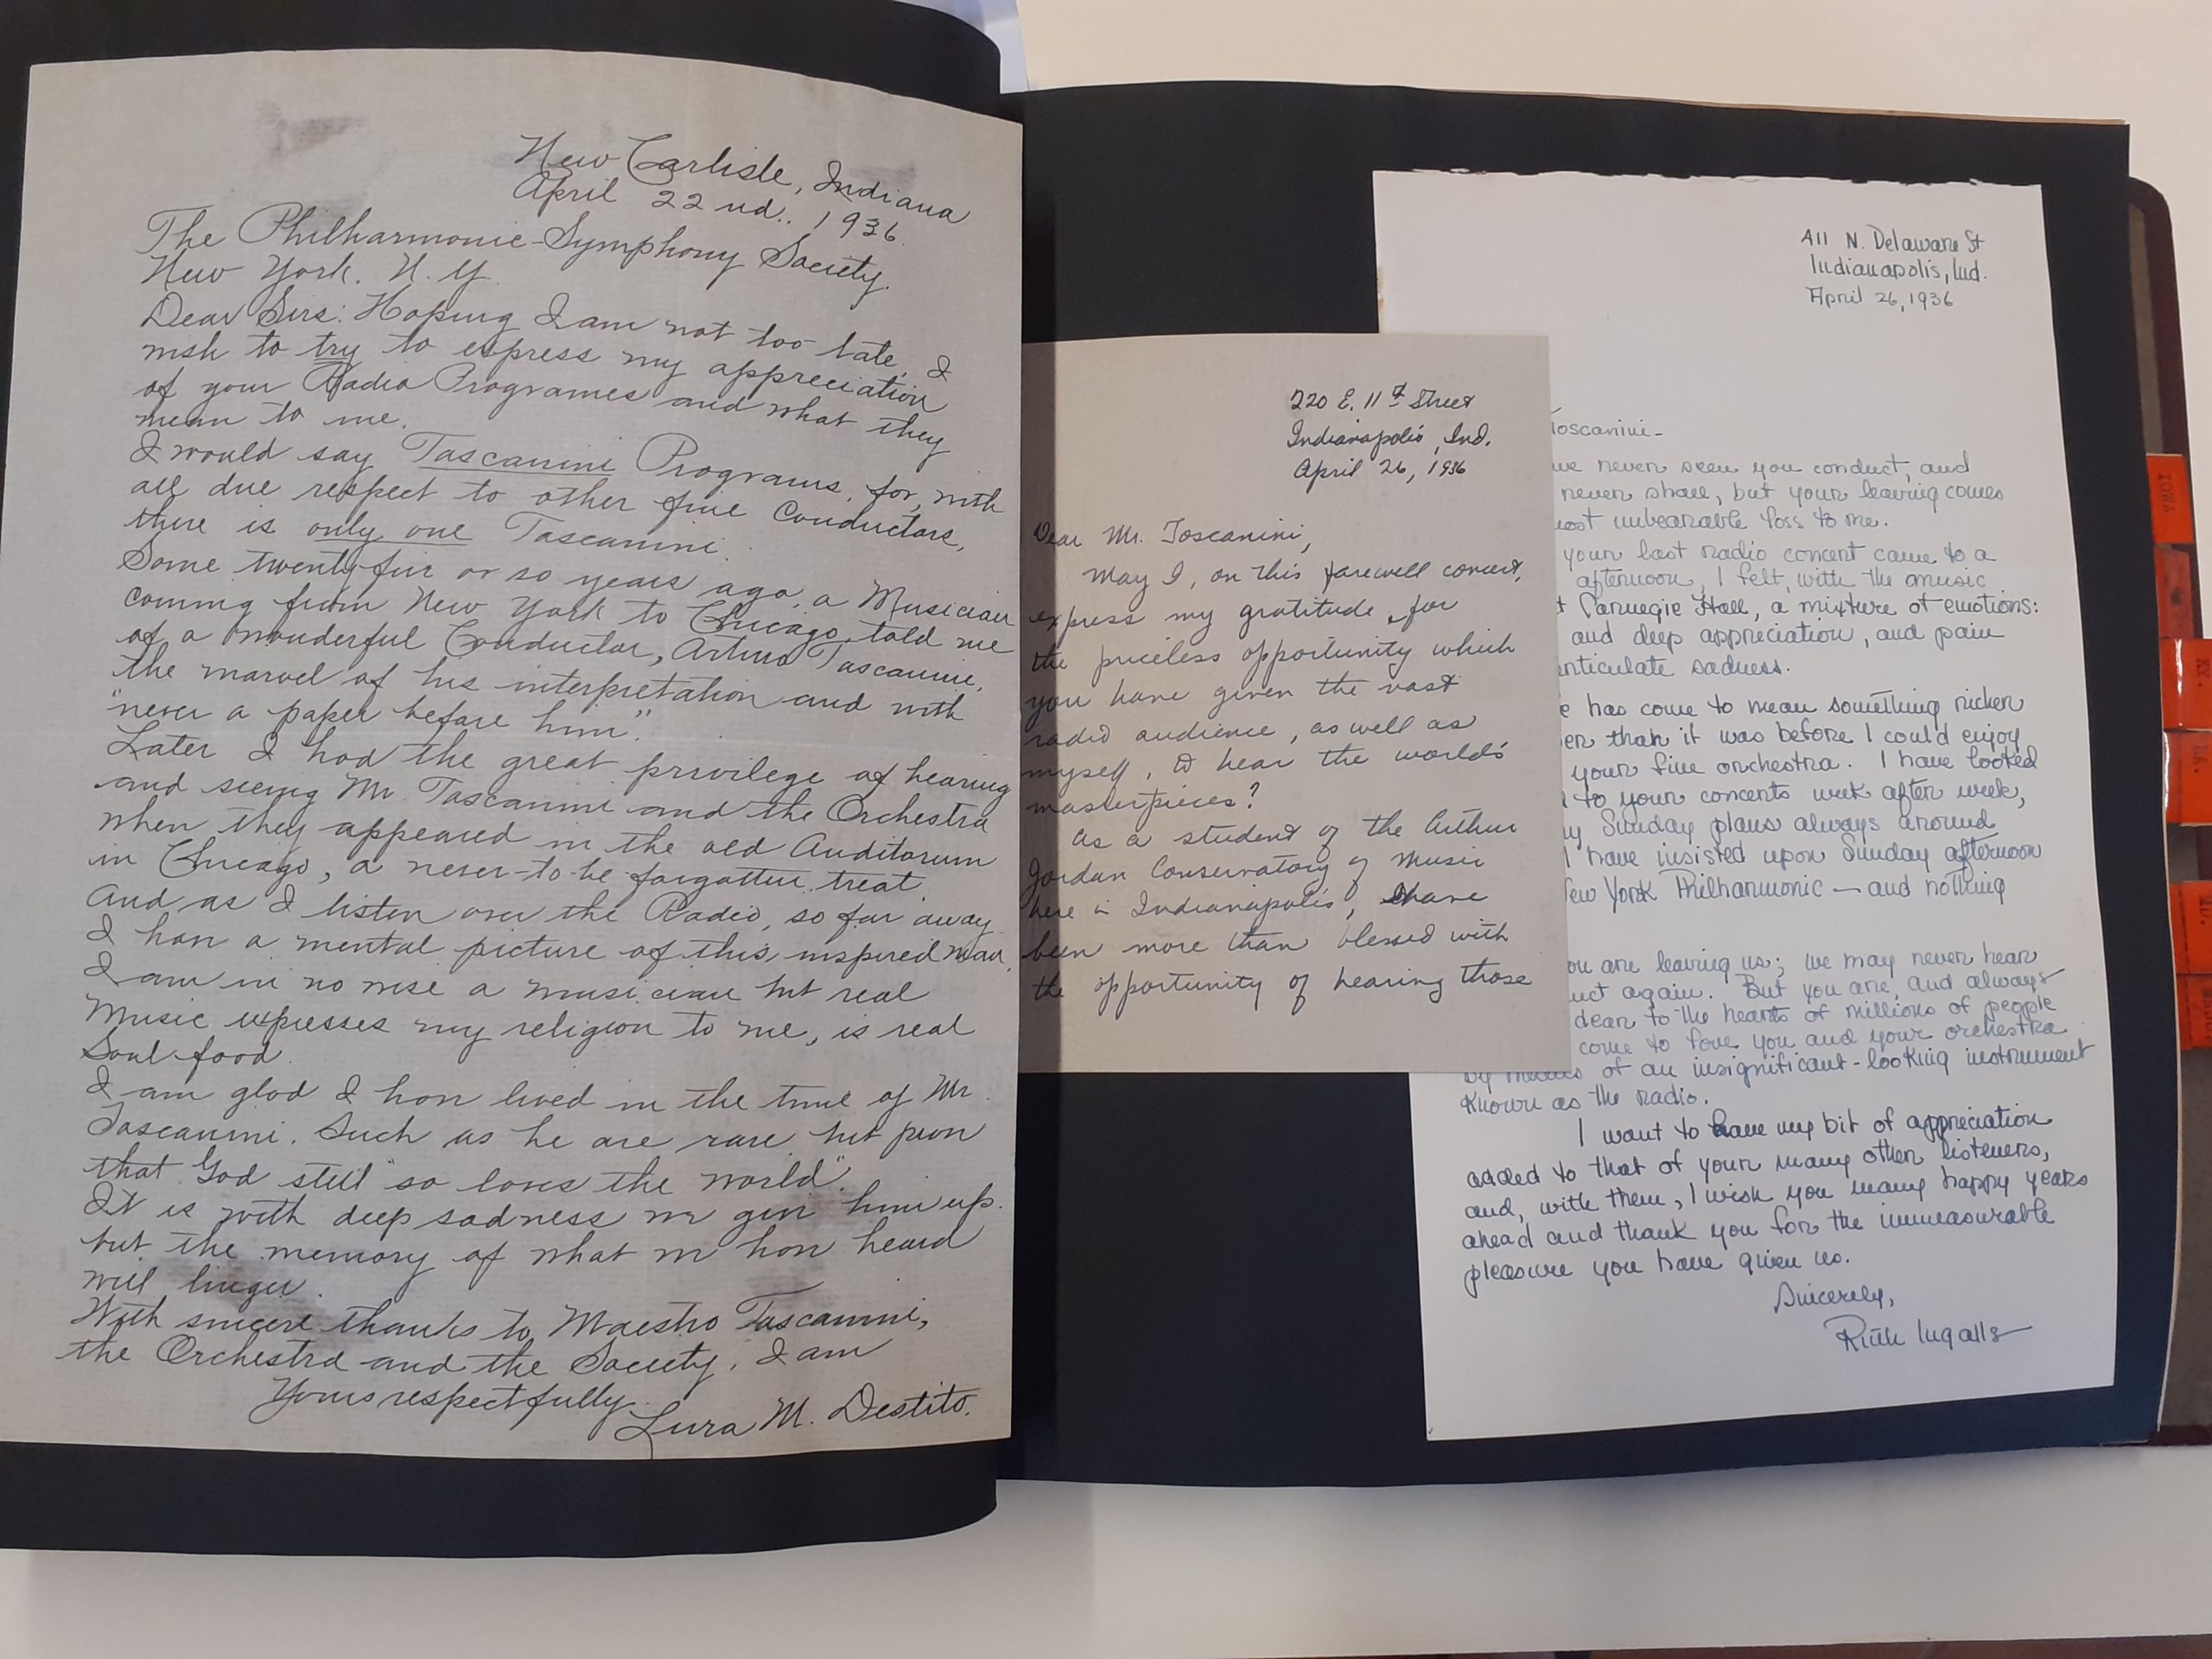 New Carlisle, Indiana
April 22nd., 1936.
The Philharmonic-Symphony Society.
New York. N. Y.
Dear Sirs: Hoping I am not too late, I
wish to try to express my appreciation
of your Radio Programes and what they
mean to me.
I would say Tascanini Programs, for, with
all due respect to other fine Conductors,
there is only one Tascanini.
Some twenty-five or so years ago, a Musician
coming from New York to Chicago, told me
of a wonderful Conductor, Arturo Tascanini,
the marvel of his interpretation and with
"never a paper before him."
Later I had the great privilege of hearing
and seeing Mr. Tascanini and the Orchestra
when they appeared in the old Auditorum
in Chicago, a never-to-be forgotten treat.
And as I listen over the Radio, so far away
I have a mental picture of this, inspired man,
I am in no wise a musician but real
Music expresses my religion to me, is real
Soul-food.
I am glad I have lived in the time of Mr.
Toscanini. Such as he are rare but prove
that God still "so loves the world".
It is with deep sadness we give him up.
but the memory of what we have heard
will linger.
With sincere thanks to Maestro Tascanini,
the Orchestra and the Society, I am
Yours respectfully
Lura M. Destito.
220 E. 11th Street
Indianapolis, Ind.
April 26, 1936
Dear Mr. Toscanini,
May I, on this farewell concert,
express my gratitude for
the priceless opportunity which
you have given the vast
radio audience, as well as
myself, to hear the world's
masterpieces?
As a student of the Arthur
Jordan Conservatory of Music
here in Indianapolis, I have
been more than blessed with
the opportunity of hearing those
411 N. Delaware St
Indianapolis, Ind.
April 26, 1936
Toscanini-
never seen you conduct, and
never shall, but your leaving comes
unbearable loss to me.
your last radio concert came to a
afternoon, I felt, with the music
Carnegie Hall, a mixture of emotions:
and deep appreciation, and pain
sadness.
has come to mean something richer
than it was before I could enjoy
your fine orchestra. I have looked
to your concerts week after week,
Sunday plans always around
I have insisted upon Sunday afternoon
New York Philharmonic — and nothing
are leaving us; we may never hear
again. But you are, and always
dear to the hearts of millions of people
come to love you and your orchestra
by means of an insignificant-looking instrument
known as the radio.
I want to have my bit of appreciation
added to that of your many other listeners,
and, with them, I wish you many happy years
ahead and thank you for the immeasurable
pleasure you have given us.
Sincerely,
Ruth Ingalls
IOWA
KY.
LA.